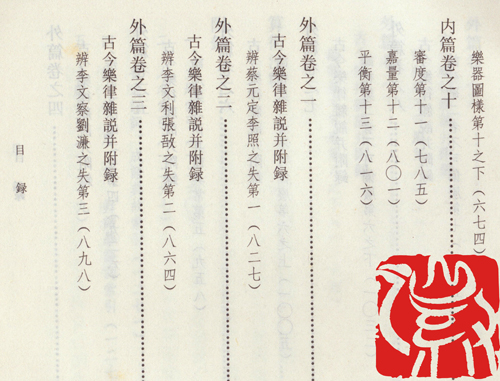 樂器圖樣第十之下(六七四)
内篇卷之十
審度第十一(七八五)
嘉量第十二(八〇一)
平衡第十三(八一六)
外篇卷之一
古今樂律雜説并附録
辨蔡元定李照之失第一(八二七)
外篇卷之二
古今樂律雜説并附録
辨李文利張敔之失第二(八六四)
外篇卷之三
古今樂律雜説并附録
辨李文察劉濂之失第三(八九八)
目録